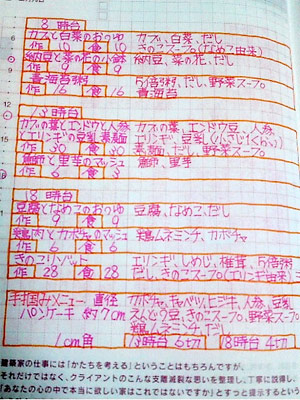 8時台
カブと白菜のおつゆ カブ、白菜、だし
作 10 食 10 きのこスープ(なめこ由来)
納豆と菜の花の小鉢 納豆、菜の花、だし
作 9 食 9
青海苔粥 5倍粥、だし、野菜スープ
作 16 食 16 青海苔
12
13時台
カブの葉とエンドウと人参 カブの葉、エンドウ豆、人参
エリンギの豆乳素麺 エリンギ、豆乳
作 30 食 30 素麺、だし、野菜スープ
と里芋のマッシュ 里芋
作 6 食 3
18時台
豆腐となめこのおつゆ 豆腐、なめこ、だし
作 9 食 9
鶏肉とカボチャのマッシュ 鶏ムネミンチ、カボチャ
作 6 食 6
きのこリゾット エリンギ、しめじ、椎茸、5倍粥
作 28 食 28 だし、きのこスープ(エリンギ由来)
手掴みメニュー 直径 カボチャ、キャベツ、ヒジキ、人参、豆乳
パンケーキ 約7cm えんどう豆、きのこスープ、野菜スープ
鶏ムネミンチ、だし
1cm角 13時台 6切 18時台 4切
建築家の仕事には「かたちを考える」ということはもちろんですが、
それだけではなく、クライアントのこんな支離滅裂な思いを整理し、丁寧に説得し、
「あなたの心の中で本当に欲しい家はこれではないですか」とすっと提示するという